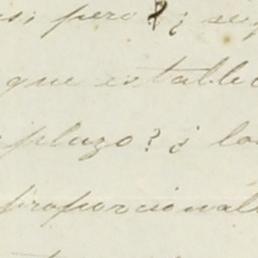 si; pero ? ¿ se
que estable
plazo? ¿ la
proporcional